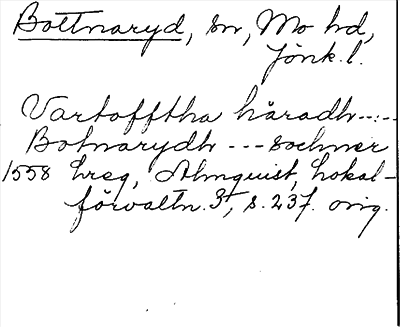 Bottnaryd, sn, Mo hd,
Jönk. l.
Vartofftha häradh -----
Botnarydh --- sochner
1558 hreg, Almquist, Lokal-
förvaltn. 3, s. 237. orig.